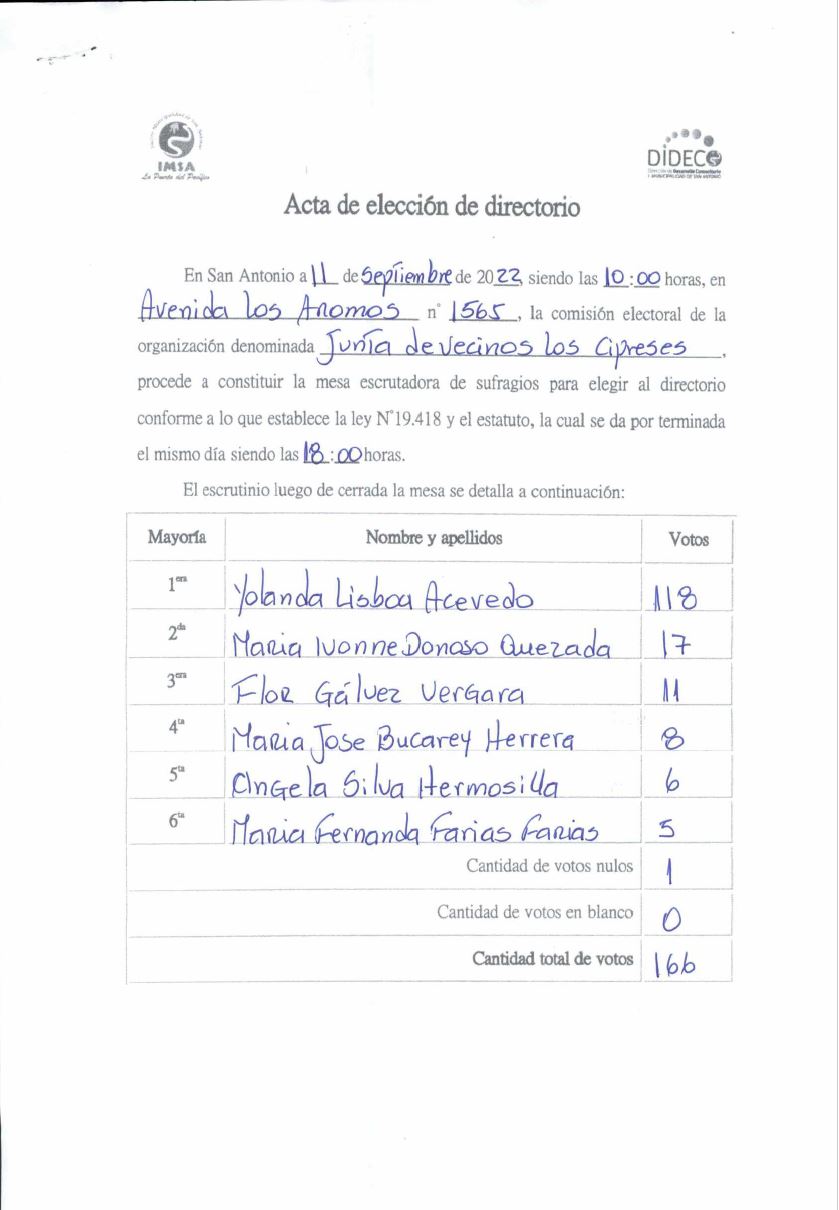 IMSA
La Puerta del Pacífico
DIDECO
Dirección de Desarrollo Comunitario
I. MUNICIPALIDAD DE SAN ANTONIO
Acta de elección de directorio
En San Antonio a 11 de Septiembre de 2022, siendo las 10:00 horas, en
Avenida los Aromos n° 1565, la comisión electoral de la
organización denominada Junta de vecinos los Cipreses,
procede a constituir la mesa escrutadora de sufragios para elegir al directorio
conforme a lo que establece la ley N°19.418 y el estatuto, la cual se da por terminada
el mismo día siendo las 18:00 horas.
El escrutinio luego de cerrada la mesa se detalla a continuación:
Mayoría Nombre y apellidos Votos
1era Yolanda Lisboa Acevedo 118
2da Maria Ivonne Donoso Quezada 17
3era Flor Gálvez Vergara 11
4ta Maria Jose Bucarey Herrera 8
5ta Angela Silva Hermosilla 6
6ta Maria Fernanda Farias Farias 5
Cantidad de votos nulos 1
Cantidad de votos en blanco 0
Cantidad total de votos 166